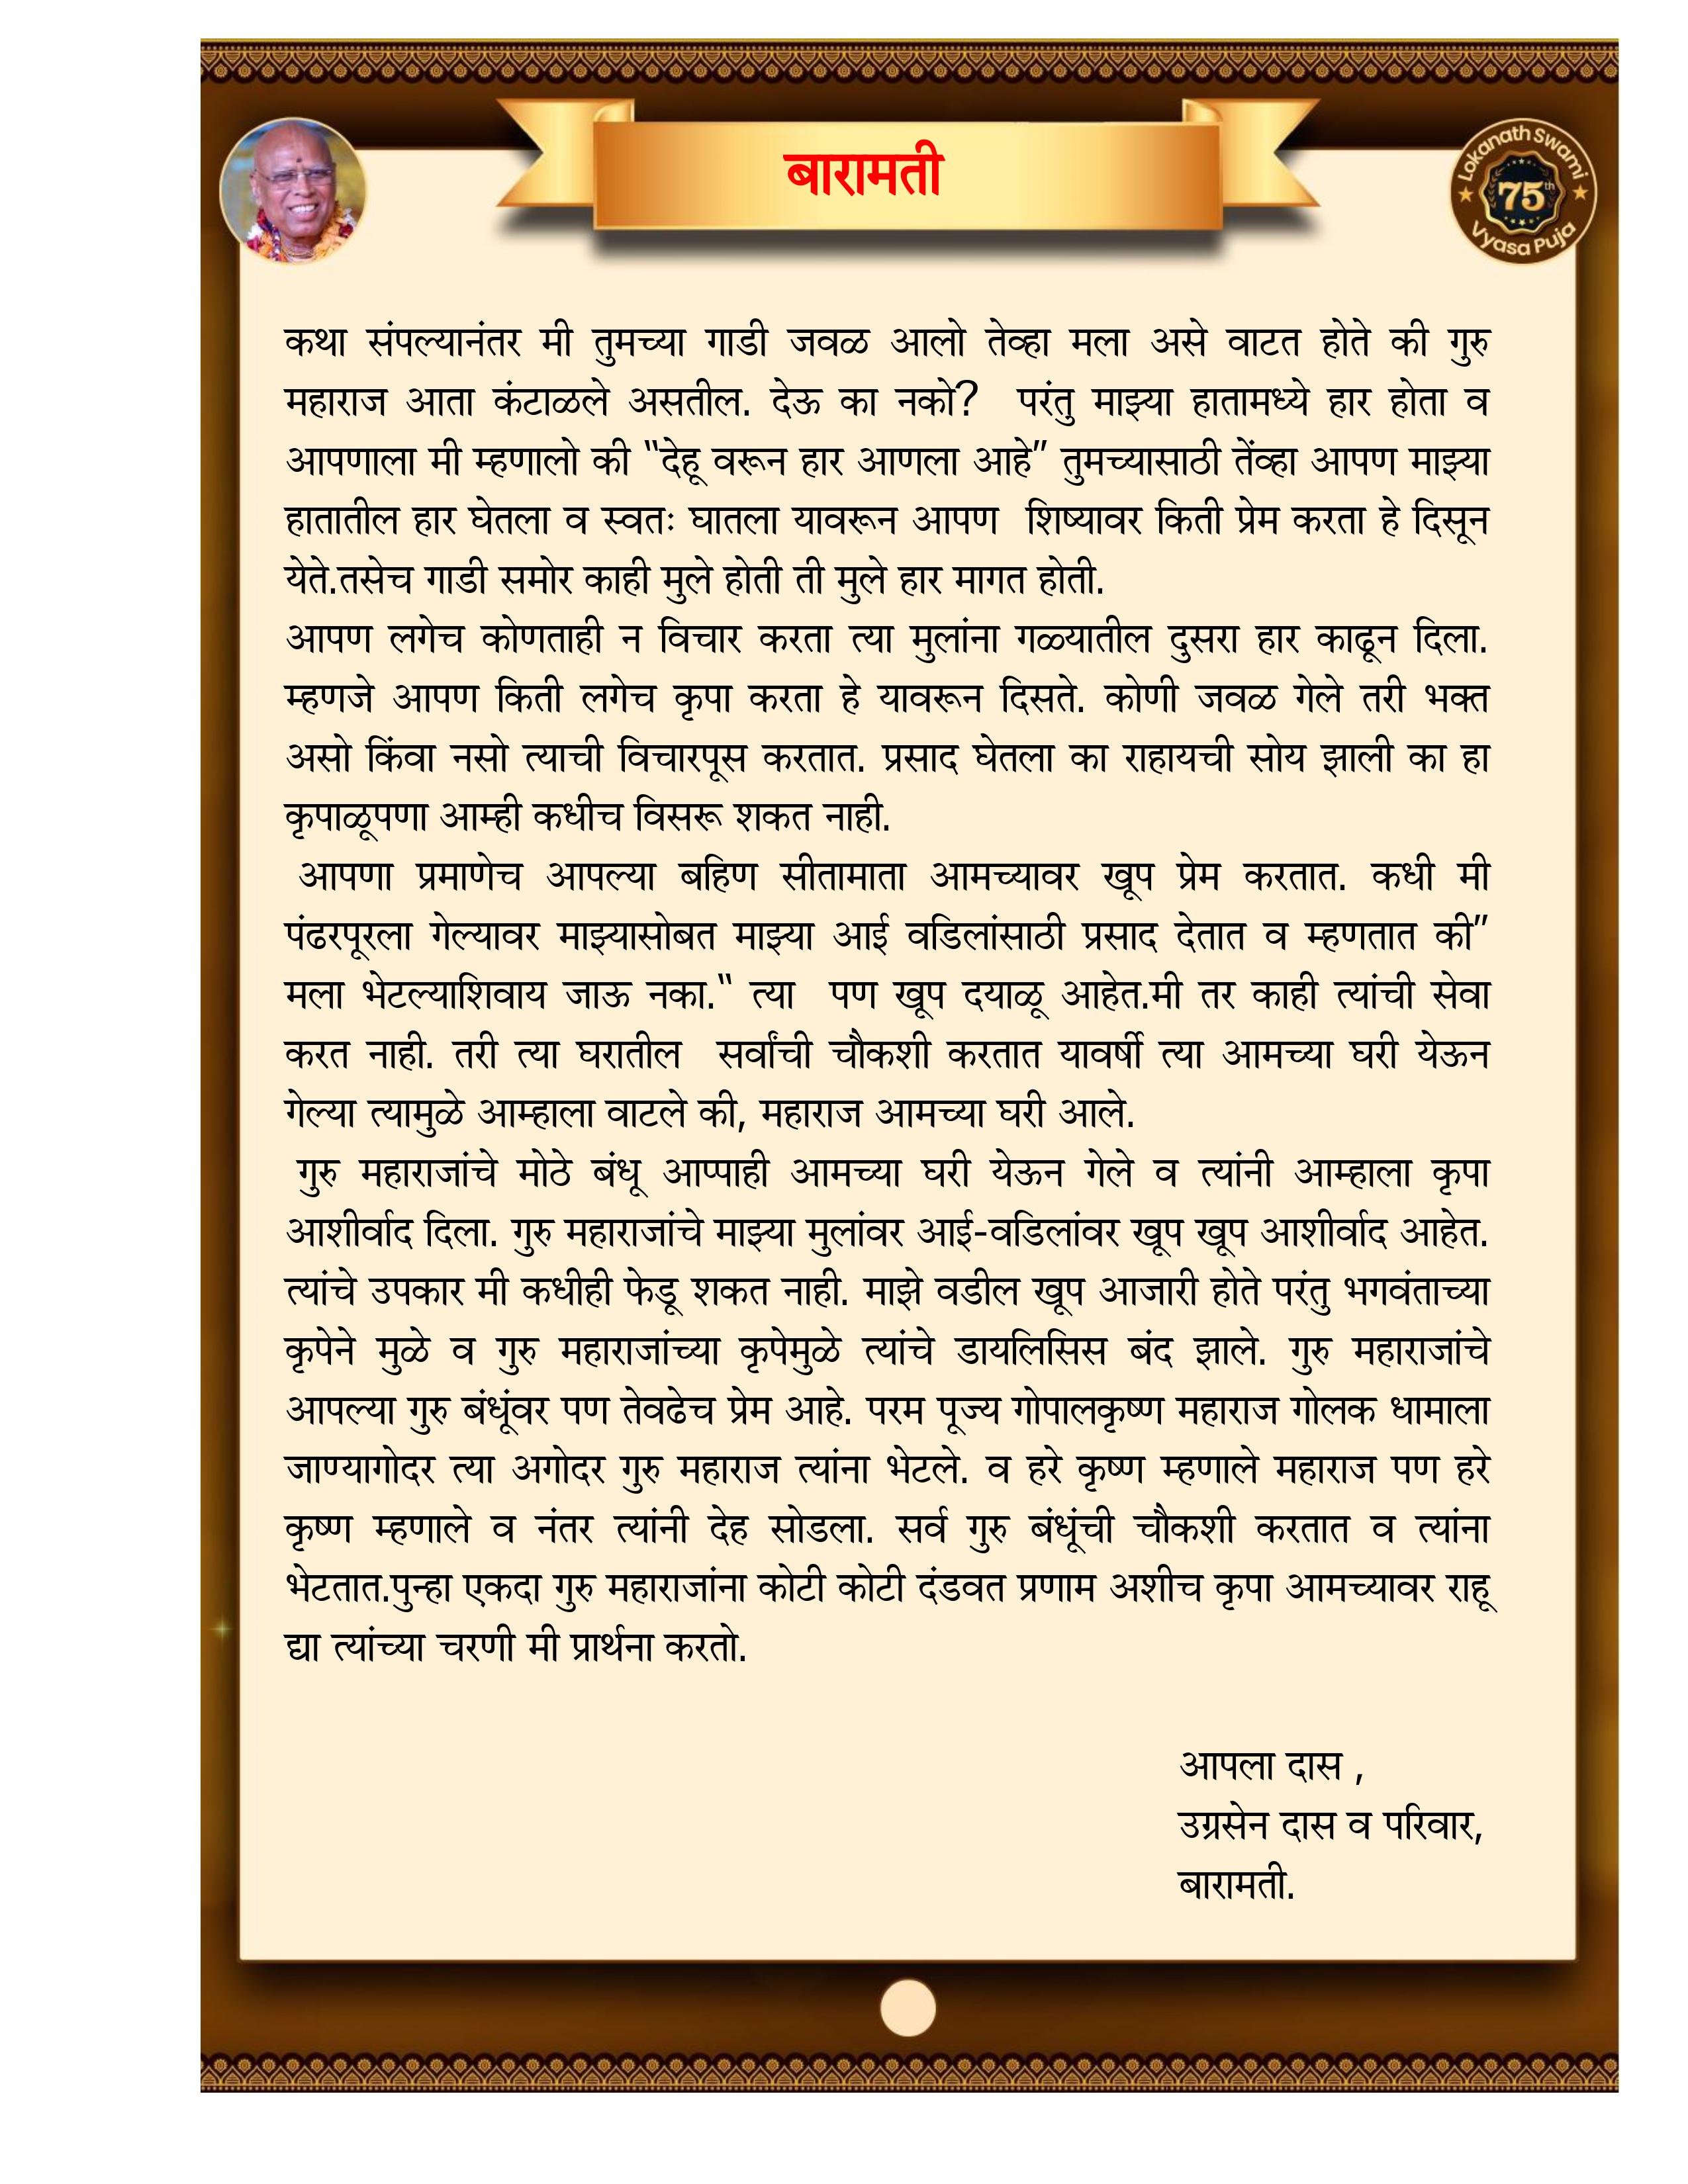 बारामती
Lokanath Swami
75th
Vyasa Puja
कथा संपल्यानंतर मी तुमच्या गाडी जवळ आलो तेव्हा मला असे वाटत होते की गुरु
महाराज आता कंटाळले असतील. देऊ का नको? परंतु माझ्या हातामध्ये हार होता व
आपणाला मी म्हणालो की “देहू वरून हार आणला आहे” तुमच्यासाठी तेंव्हा आपण माझ्या
हातातील हार घेतला व स्वतः घातला यावरून आपण शिष्यावर किती प्रेम करता हे दिसून
येते.तसेच गाडी समोर काही मुले होती ती मुले हार मागत होती.
आपण लगेच कोणताही न विचार करता त्या मुलांना गळ्यातील दुसरा हार काढून दिला.
म्हणजे आपण किती लगेच कृपा करता हे यावरून दिसते. कोणी जवळ गेले तरी भक्त
असो किंवा नसो त्याची विचारपूस करतात. प्रसाद घेतला का राहायची सोय झाली का हा
कृपाळूपणा आम्ही कधीच विसरू शकत नाही.
आपणा प्रमाणेच आपल्या बहिण सीतामाता आमच्यावर खूप प्रेम करतात. कधी मी
पंढरपूरला गेल्यावर माझ्यासोबत माझ्या आई वडिलांसाठी प्रसाद देतात व म्हणतात की”
मला भेटल्याशिवाय जाऊ नका.“ त्या पण खूप दयाळू आहेत.मी तर काही त्यांची सेवा
करत नाही. तरी त्या घरातील सर्वांची चौकशी करतात यावर्षी त्या आमच्या घरी येऊन
गेल्या त्यामुळे आम्हाला वाटले की, महाराज आमच्या घरी आले.
गुरु महाराजांचे मोठे बंधू आप्पाही आमच्या घरी येऊन गेले व त्यांनी आम्हाला कृपा
आशीर्वाद दिला. गुरु महाराजांचे माझ्या मुलांवर आई-वडिलांवर खूप खूप आशीर्वाद आहेत.
त्यांचे उपकार मी कधीही फेडू शकत नाही. माझे वडील खूप आजारी होते परंतु भगवंताच्या
कृपेने मुळे व गुरु महाराजांच्या कृपेमुळे त्यांचे डायलिसिस बंद झाले. गुरु महाराजांचे
आपल्या गुरु बंधूंवर पण तेवढेच प्रेम आहे. परम पूज्य गोपालकृष्ण महाराज गोलक धामाला
जाण्यागोदर त्या अगोदर गुरु महाराज त्यांना भेटले. व हरे कृष्ण म्हणाले महाराज पण हरे
कृष्ण म्हणाले व नंतर त्यांनी देह सोडला. सर्व गुरु बंधूंची चौकशी करतात व त्यांना
भेटतात.पुन्हा एकदा गुरु महाराजांना कोटी कोटी दंडवत प्रणाम अशीच कृपा आमच्यावर राहू
द्या त्यांच्या चरणी मी प्रार्थना करतो.
आपला दास ,
उग्रसेन दास व परिवार,
बारामती.